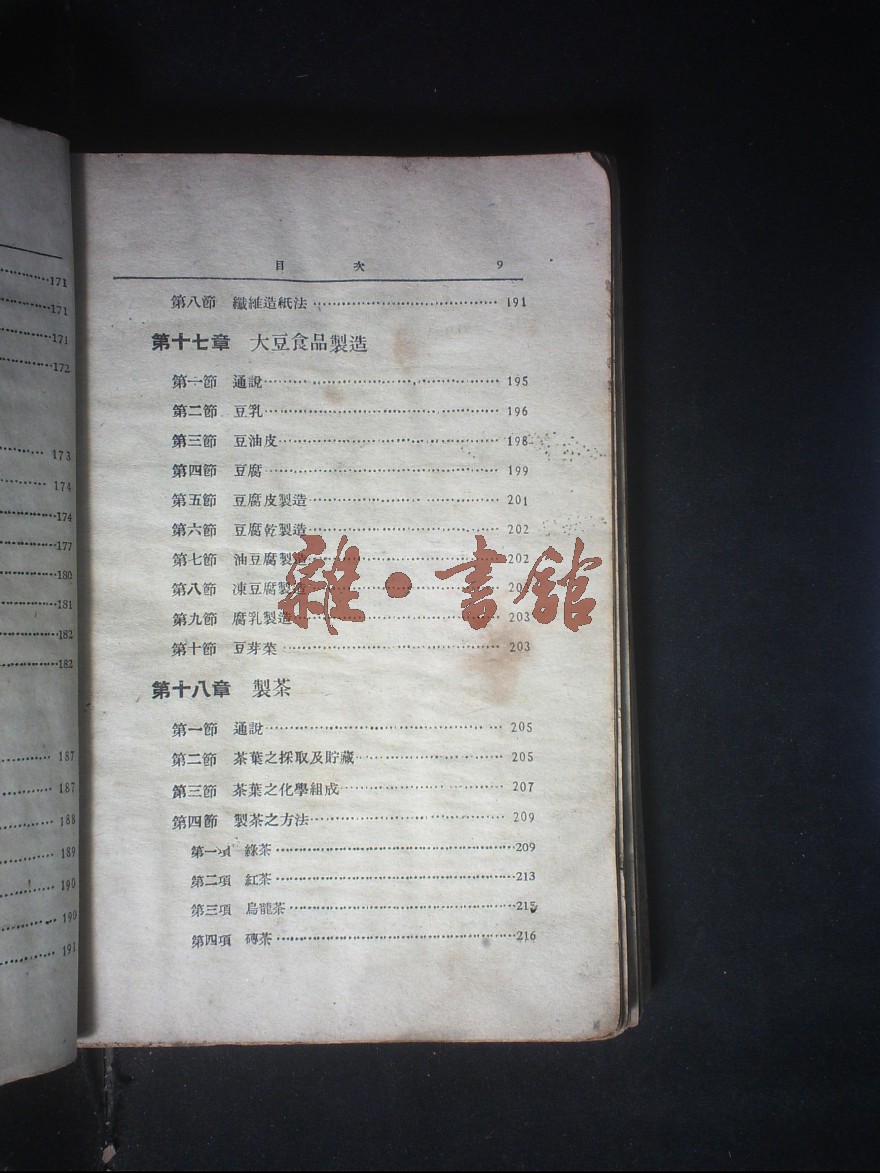 171
171
171
172
173
174
174
177
180
181
182
182
187
187
188
189
190
190
191
目 次 9
第八節 纖維造紙法 191
第十七章 大豆食品製造
第一節 通說 195
第二節 豆乳 196
第三節 豆油皮 198
第四節 豆腐 199
第五節 豆腐皮製造 201
第六節 豆腐乾製造 202
第七節 油豆腐製造 202
第八節 凍豆腐製造
第九節 腐乳製造 203
第十節 豆芽菜 203
第十八章 製茶
第一節 通說 205
第二節 茶葉之採取及貯藏 205
第三節 茶葉之化學組成 207
第四節 製茶之方法 209
第一項 綠茶 209
第二項 紅茶 213
第三項 烏龍茶 215
第四項 磚茶 216
雜·書館